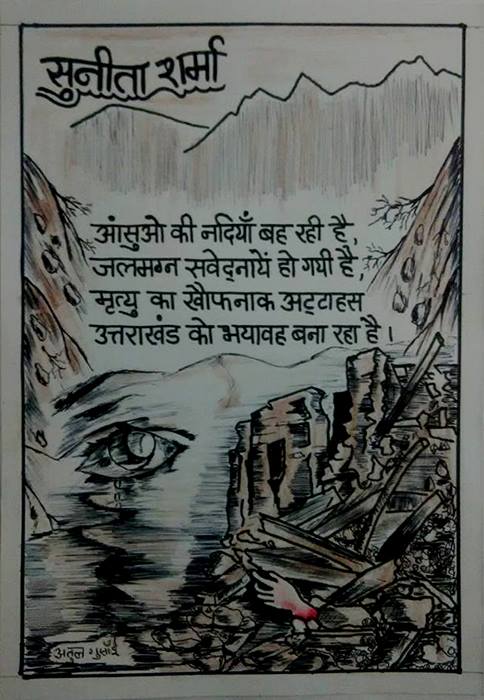 सुनीता शर्मा
आंसुओ की नदियाँ बह रही है,
जलमग्न सवेदनायें हो गयी है,
मृत्यु का खौफनाक अट्टाहस
उत्तराखंड को भयावह बना रहा है।
अतुल गुसाँई